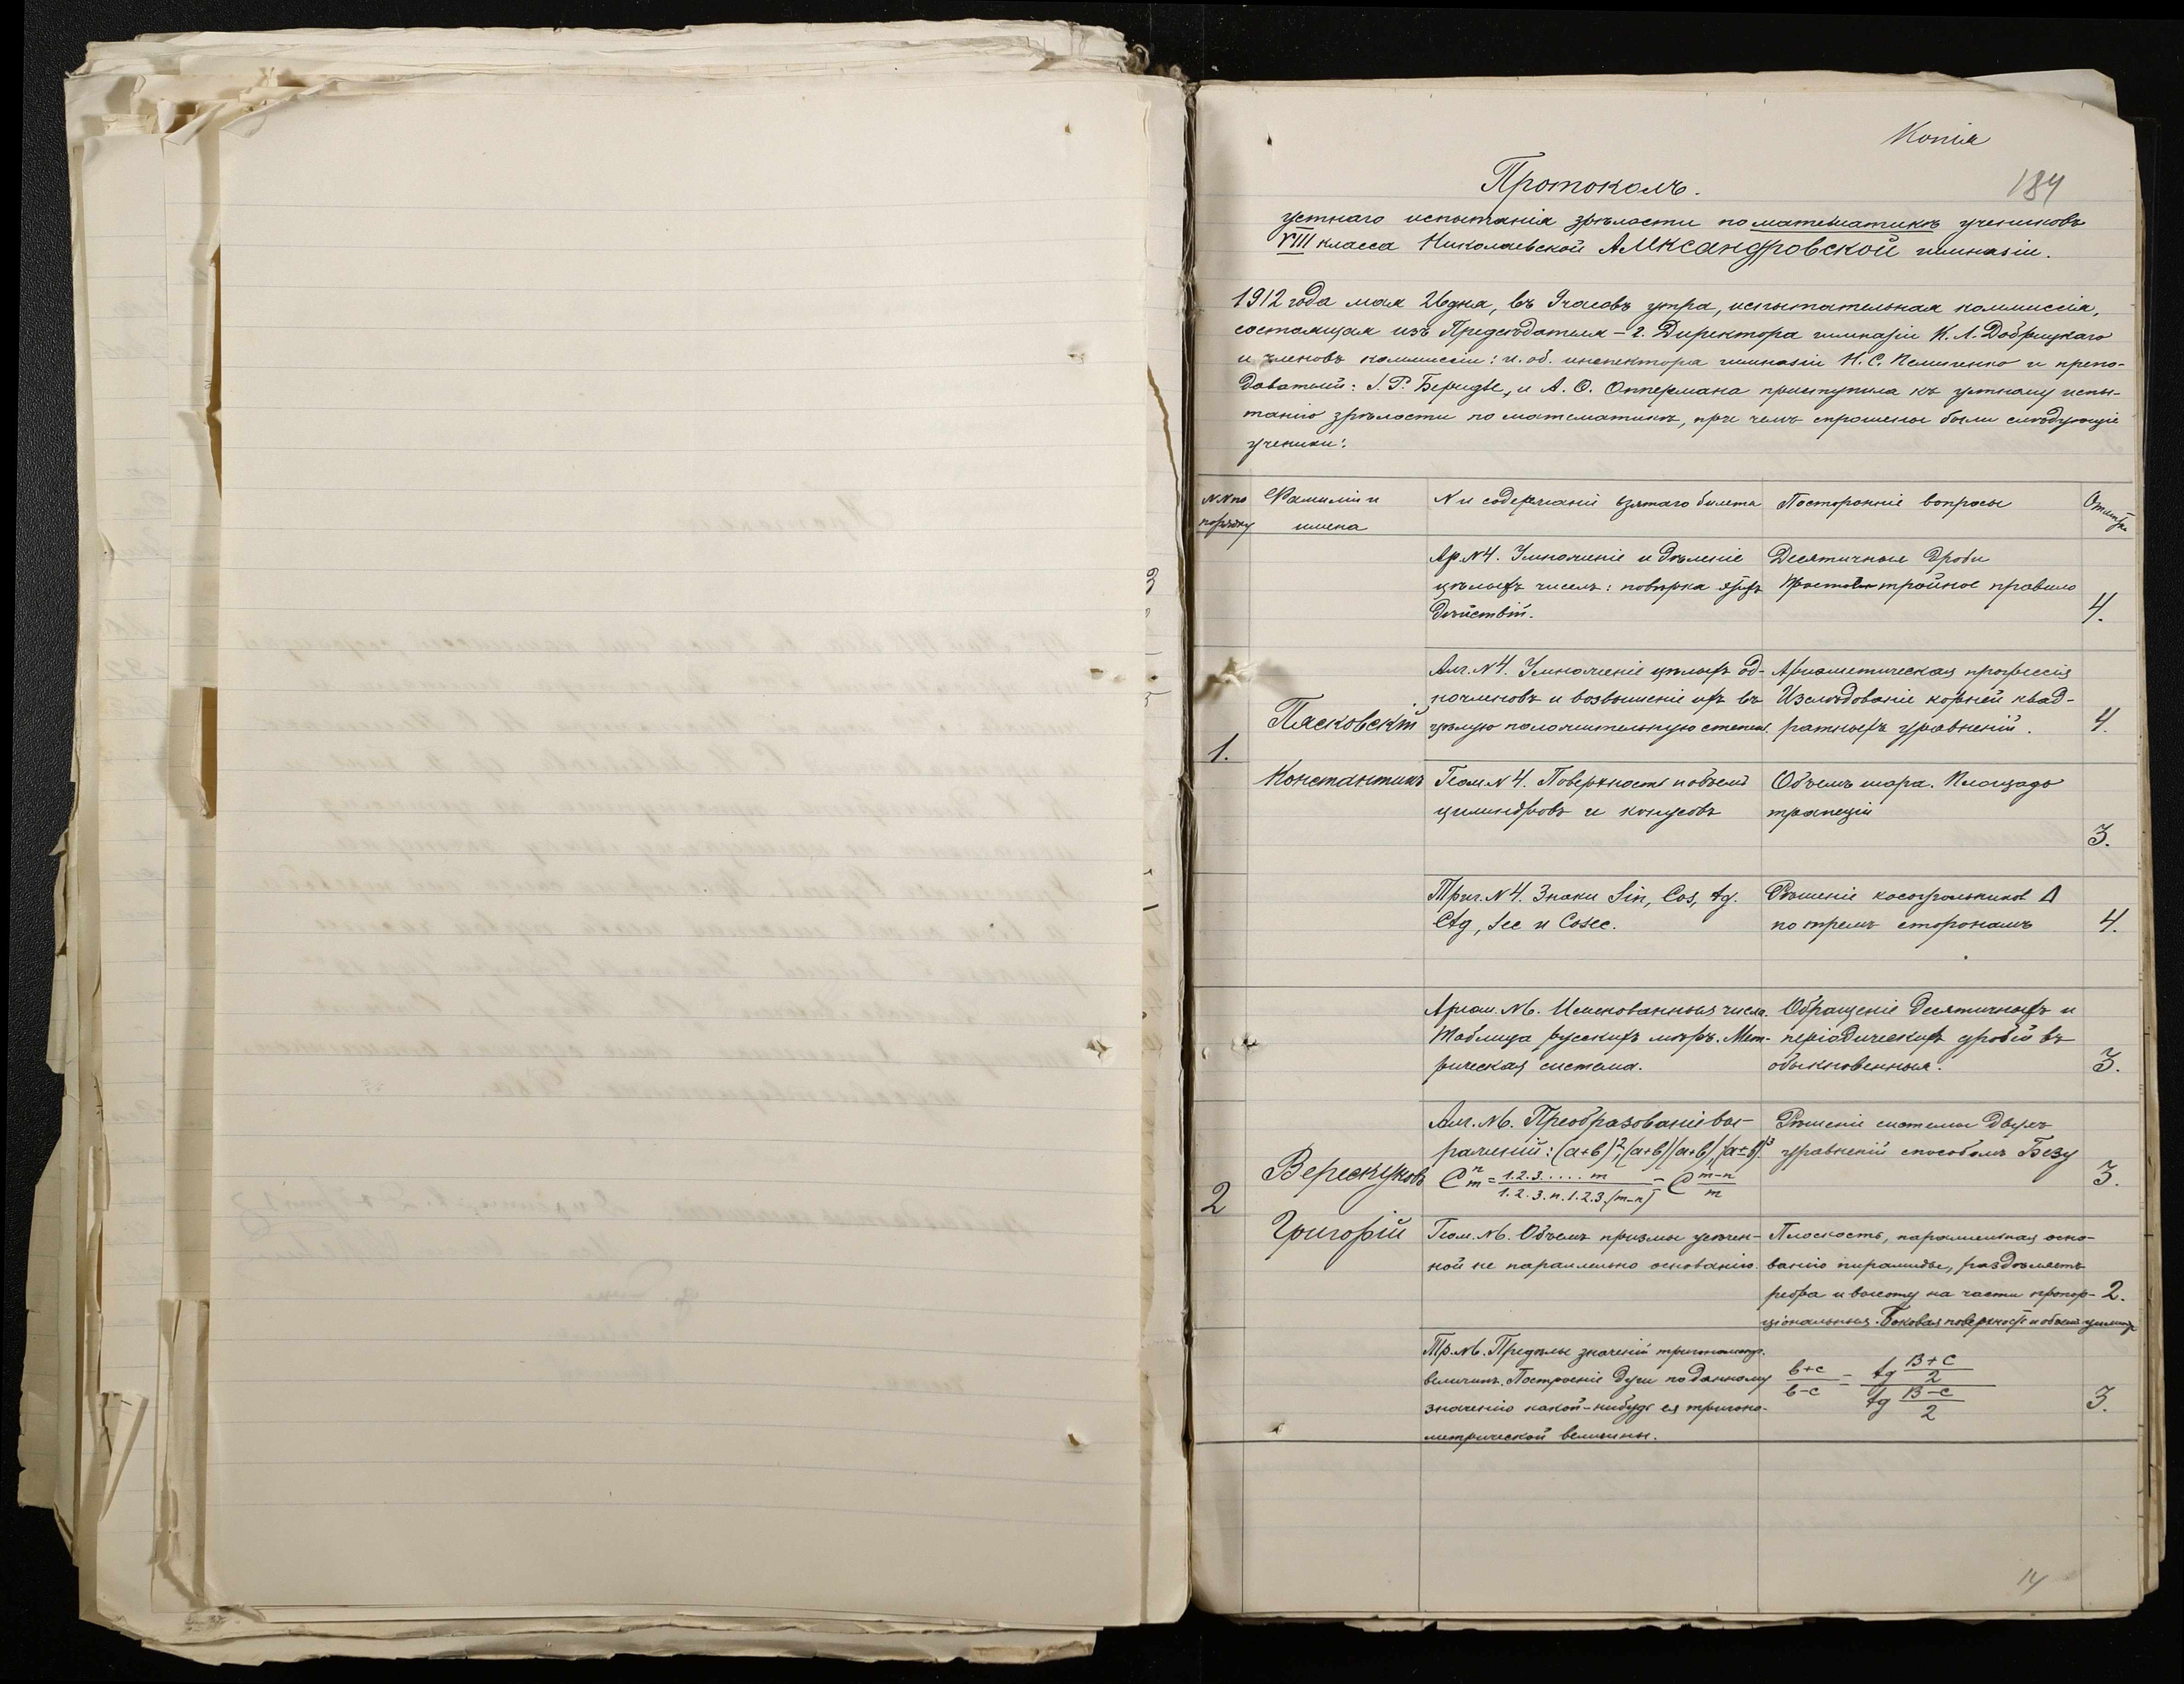 Копія
184
Протоколъ.
устнаго испытанія зрѣлости по математикѣ учениковъ
VIII класса Николаевской Александровской гимназіи.
1912 года мая 26 дня, въ 9 часовъ утра, испытательная коммиссія,
состоящая изъ Предсѣдателя – г. Директора гимназіи К. Л. Добрицкаго
и членовъ коммиссіи: и. об. инспектора гимназіи Н. С. и препо-
давателей: І. Р. Беридзе, и А. О. Оппермана приступила къ устному испы-
танію зрѣлости по математикѣ, при чемъ спрошены были слѣдующіе
ученики:
№№ по порядку
Фамиліи и имена
№ и содержаніе взятаго билета
Посторонніе вопросы
Ар. №4. Умноженіе и дѣленіе
цѣлыхъ чиселъ: повѣрка этихъ
дѣйствій.
Десятичныя дроби
тройное правило
4.
1.
Пясковскій
Константинъ
Алг. №4. Умноженіе цѣлыхъ од-
ночленовъ и возвышеніе ихъ въ
цѣлую положительную степень.
Ариѳметическая прогрессія
Изслѣдованіе корней квад-
ратныхъ уравненій.
4.
Геом. №4. Поверхность и объемъ
цилиндровъ и конусовъ
Объемъ шара. Площадь
трапеціи
3.
Триг. №4. Знаки Sin, Cos, tg.
Ctg, Sec и Cosec.
Рѣшеніе косоугольниковъ Δ
по тремъ сторонамъ
4.
Ариѳм. №6. Именованныя числа.
Таблица русскихъ мѣръ. Мет-
рическая система.
Обращеніе десятичныхъ и
періодическихъ дробей въ
обыкновенныя.
3.
2
Верескуновъ
Григорій
Алг. №6. Преобразованіе вы-
раженій: (a+b)², (a+b)(a+b), (a±b)³
C n m = 1.2.3.....m / 1.2.3.n.1.2.3.(m-n) = C m-n m
Рѣшеніе системы двухъ
уравненій способомъ Безу
3.
Геом. №6. Объемъ призмы усѣчен-
ной не параллельно основанію.
Плоскость, параллельная осно-
ванію пирамиды, раздѣляетъ
ребра и высоту на части пропор-
ціональныя. Боковая поверхность и объемъ цилинд.
2.
Тр. №6. Предѣлы значеній тригонометр.
величинъ. Построеніе дуги по данному
значенію какой-нибудь ея тригоно-
метрической величины.
b+c / b-c = tg B+C/2 / tg B-C/2
3.
14